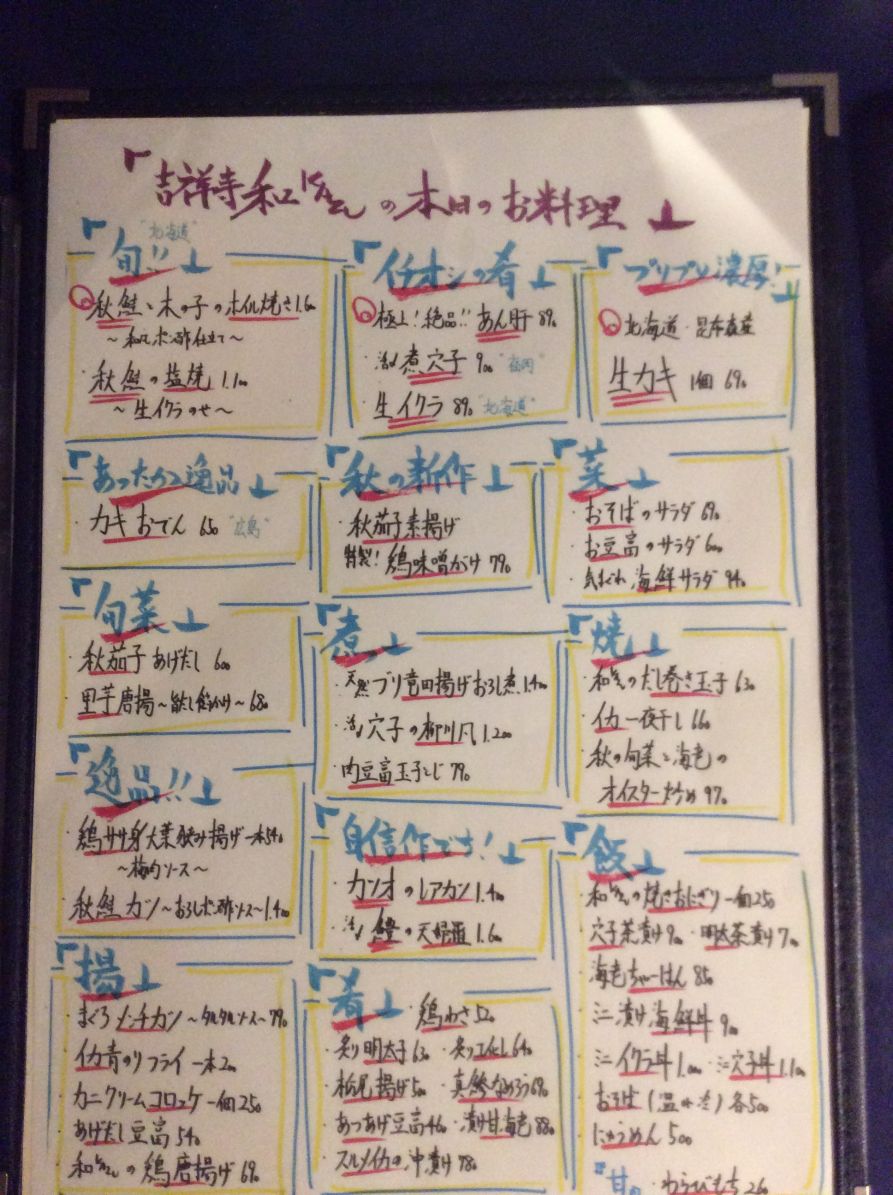 「吉祥寺 和 の本日のお料理」
「旬!!」 "北海道"
秋鮭と木の子のホイル焼き 1.6
～和風ポン酢仕立て～
・秋鮭の塩焼 1.1
～生イクラのせ～
「イチオシの肴」
極上!絶品!! あん肝 890
・活〆煮穴子 900 "福岡"
・生イクラ 890 "北海道"
「プリプリ濃厚!」
北海道・昆布森産
生カキ 1個 690
「あったか逸品」
・カキおでん 650 "広島"
「秋の新作」
・秋茄子素揚げ
特製!鶏味噌がけ 790
「菜」
・おそばのサラダ 690
・お豆富のサラダ 600
・気まぐれ海鮮サラダ 940
「旬菜」
・秋茄子あげだし 600
・里芋唐揚 680
「煮」
・天然ブリ竜田揚げおろし煮 1.400
・活〆穴子の柳川風 1.200
・肉豆富玉子とじ 790
「焼」
のだし巻き玉子 630
・イカ一夜干し 660
・秋の旬菜と海老の
オイスター炒め 970
「逸品!!」
・鶏ササ身大葉挟み揚げ 一本540
～梅肉ソース～
・秋鮭カツ～おろしポン酢ソース～1.400
「自信作です!」
・カツオのレアカツ 1.400
・活〆鱧の天婦羅 1.600
「飯」
の焼きおにぎり 一個250
・穴子茶漬け 900 ・明太茶漬け 700
・海老ちゃーはん 850
・ミニ漬け海鮮丼 900
・ミニイクラ丼 1.000 ・ミニ穴子丼 1.100
・おそば(温or冷) 各500
・にゅうめん 500
「揚」
・まぐろメンチカツ～タルタルソース～790
・イカ青のりフライ 一本200
・カニクリームコロッケ 一個250
・あげだし豆富 540
の鶏唐揚げ 690
「肴」 ・鶏わさ 520
・炙り明太子 630 ・炙り 640
・栃尾揚げ 500 ・真鯵なめろう 690
・あつあげ豆富 460 ・漬け甘海老 880
・スルメイカの沖漬け 780
「甘 ・わらびもち 260